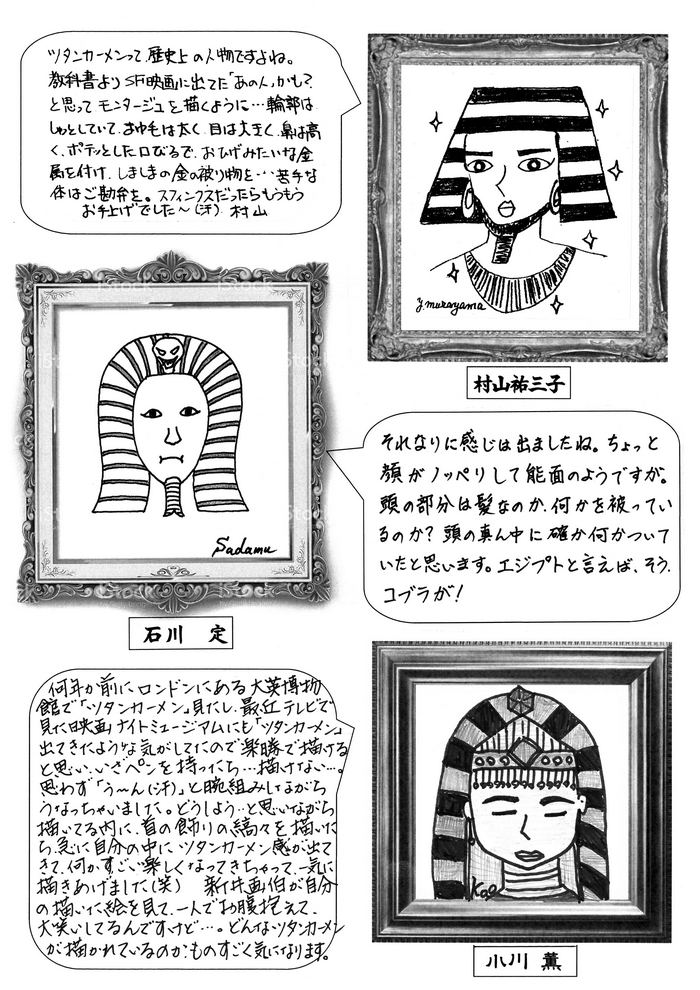 ツタンカーメンって歴史上の人物ですよね。
教科書よりSF映画に出てた「あの人」かも？
と思ってモンタージュを描くように…輪郭は
しゅっとしていて、まゆ毛は太く、目は大きく、鼻は高
く、ポテッとした口びるで、おひげみたいな金
属を付け、しましまの金の被り物を…苦手な
体はご勘弁を。スフィンクスだったらもうもう
お手上げでした〜(汗) 村山
y.murayama
村山祐三子
Sadamu
石川 定
それなりに感じは出ましたね。ちょっと
顔がノッペリして能面のようですが。
頭の部分は髪なのか、何かを被ってい
るのか？頭の真ん中に確か何かついて
いたと思います。エジプトと言えば、そう、
コブラが！
何年か前にロンドンにある大英博物
館で「ツタンカーメン」見たし、最近テレビで
見た映画ナイトミュージアムにも「ツタンカーメン」
出てきたような気がしてたので楽勝で描ける
と思い、いざペンを持ったら…描けない…。
思わず「う〜ん(汗)」と腕組みしながら
うなっちゃいました。どうしよう…と思いながら
描いてる内に、首の飾りの縞々を描いた
ら、急に自分の中に、ツタンカーメン感が出て
きて、何かすごい楽しくなってきちゃって、一気に
描きあげました(笑) 新井画伯が自分
の描いた絵を見て、一人でお腹抱えて、
大笑いしてるんですけど…。どんなツタンカーメン
が描かれているのか、ものすごく気になります。
Kao
小川 薫